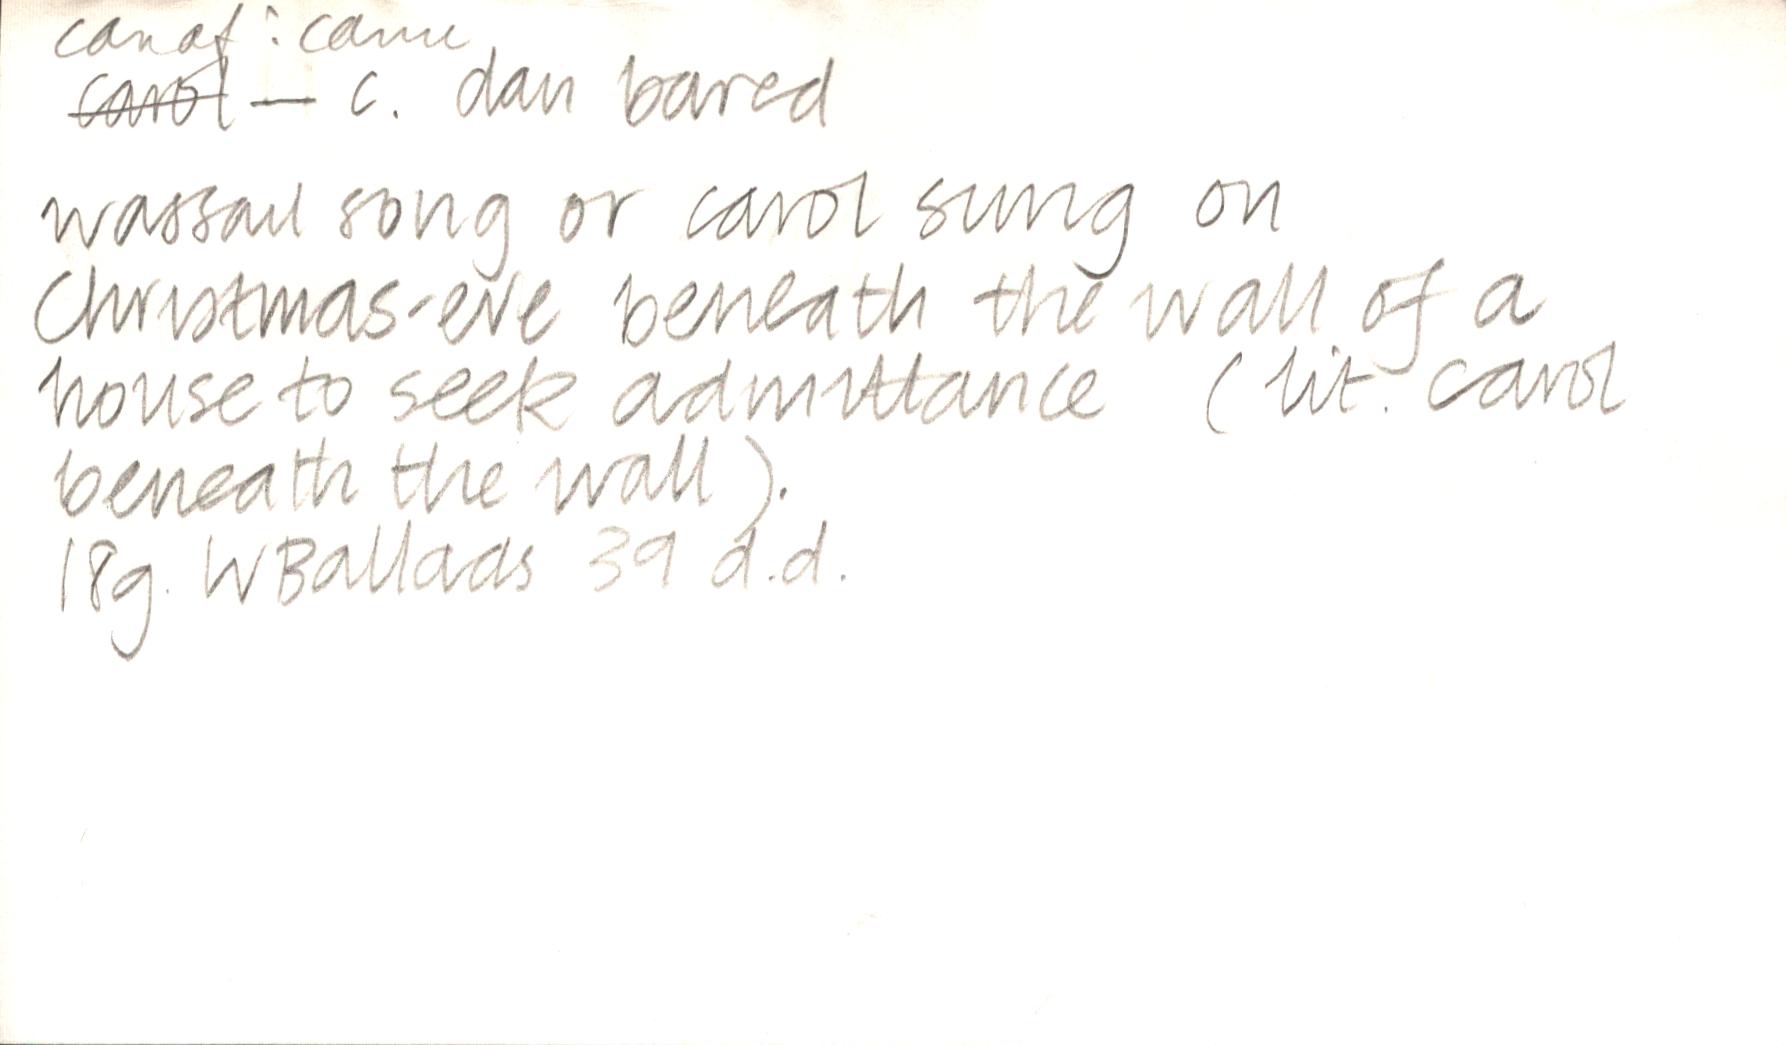 canaf : canu
carol — c. dan bared
wassail song or carol sung on
Christmas-eve beneath the wall of a
house to seek admittance (lit. carol
beneath the wall).
18g. WBallads 39 d.d.